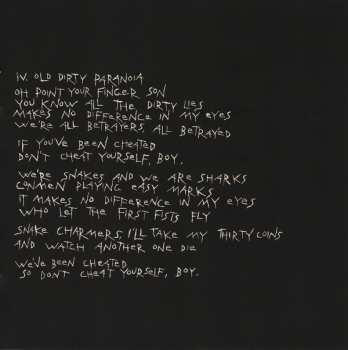 IV. OLD DIRTY PARANOIA
OH POINT YOUR FINGER SON
YOU KNOW ALL THE DIRTY LIES
MAKES NO DIFFERENCE IN MY EYES
WE'RE ALL BETRAYERS, ALL BETRAYED
IF YOU'VE BEEN CHEATED
DON'T CHEAT YOURSELF, BOY.
WE'RE SNAKES AND WE ARE SHARKS
CONMEN PLAYING EASY MARKS
IT MAKES NO DIFFERENCE IN MY EYES
WHO LET THE FIRST FISTS FLY
SNAKE CHARMERS, I'LL TAKE MY THIRTY COINS
AND WATCH ANOTHER ONE DIE
WE'VE BEEN CHEATED
SO DON'T CHEAT YOURSELF, BOY.